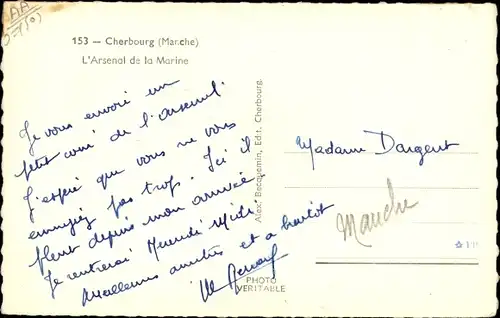 AA
153 — Cherbourg (Manche)
L'Arsenal de la Marine
Je vous envoie un
petit coin de l'arsenal.
J'espère que vous ne vous
ennuyiez pas trop. Ici il
pleut depuis mon arrivée
Je rentrerai Mercredi Midi
Meilleures amitiés et a bientôt
Alex. Becquemin, Edit. Cherbourg.
Madame Dargent
Manche
PHOTO
VERITABLE